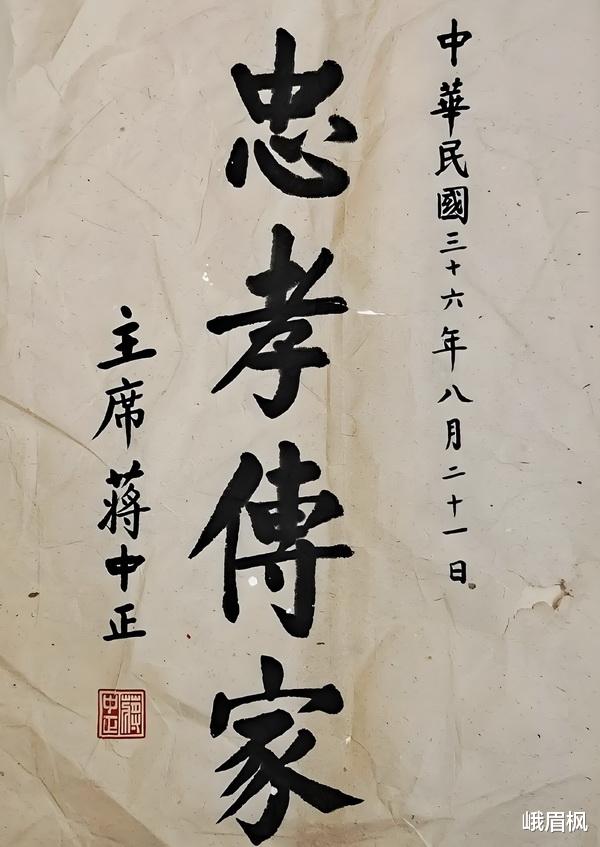 中華民國三十六年八月二十一日
忠孝傳家
主席蔣中正
蔣中正
峨眉枫